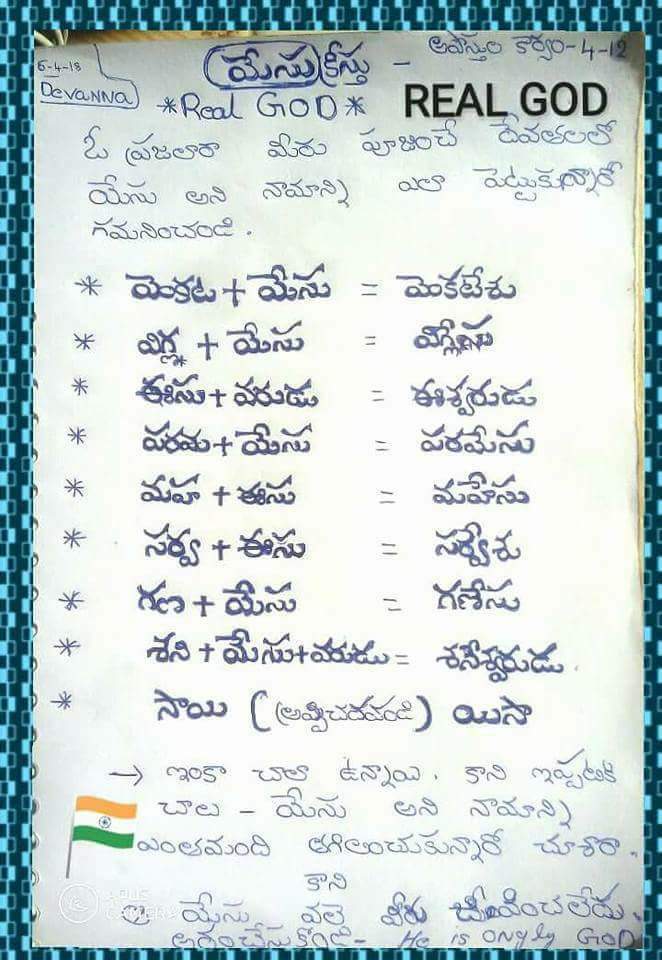 యేసు క్రీస్తు - అపొస్తుల కార్యం-4-12
6-4-18
Devanna
*Real GOD* REAL GOD
ఓ ప్రజలారా మీరు పూజించే దేవతలలో
యేసు అని నామాన్ని ఎలా పెట్టుకున్నారో
గమనించండి.
* వెంకట + యేసు = వెంకటేశు
* విగ్న + యేసు = విగ్నేసు
* ఈసు + వరుడు = ఈశ్వరుడు
* పరమ + యేసు = పరమేసు
* మహా + ఈసు = మహేసు
* సర్వ + ఈసు = సర్వేశు
* గణ + యేసు = గణేసు
* శని + యేసు + వరుడు = శనేశ్వరుడు.
* సాయి ( ) యిసా
→ ఇంకా చాలా ఉన్నాయి. కాని ఇప్పటికి
చాల - యేసు అని నామాన్ని
ఎంతమంది తగిలించుకున్నారో చూశారా.
కాని
ఆ యేసు వలె వీరు జీవించలేదు.
అర్ధంచేసుకోండి - He is only GOD
PLUS
CAMERA